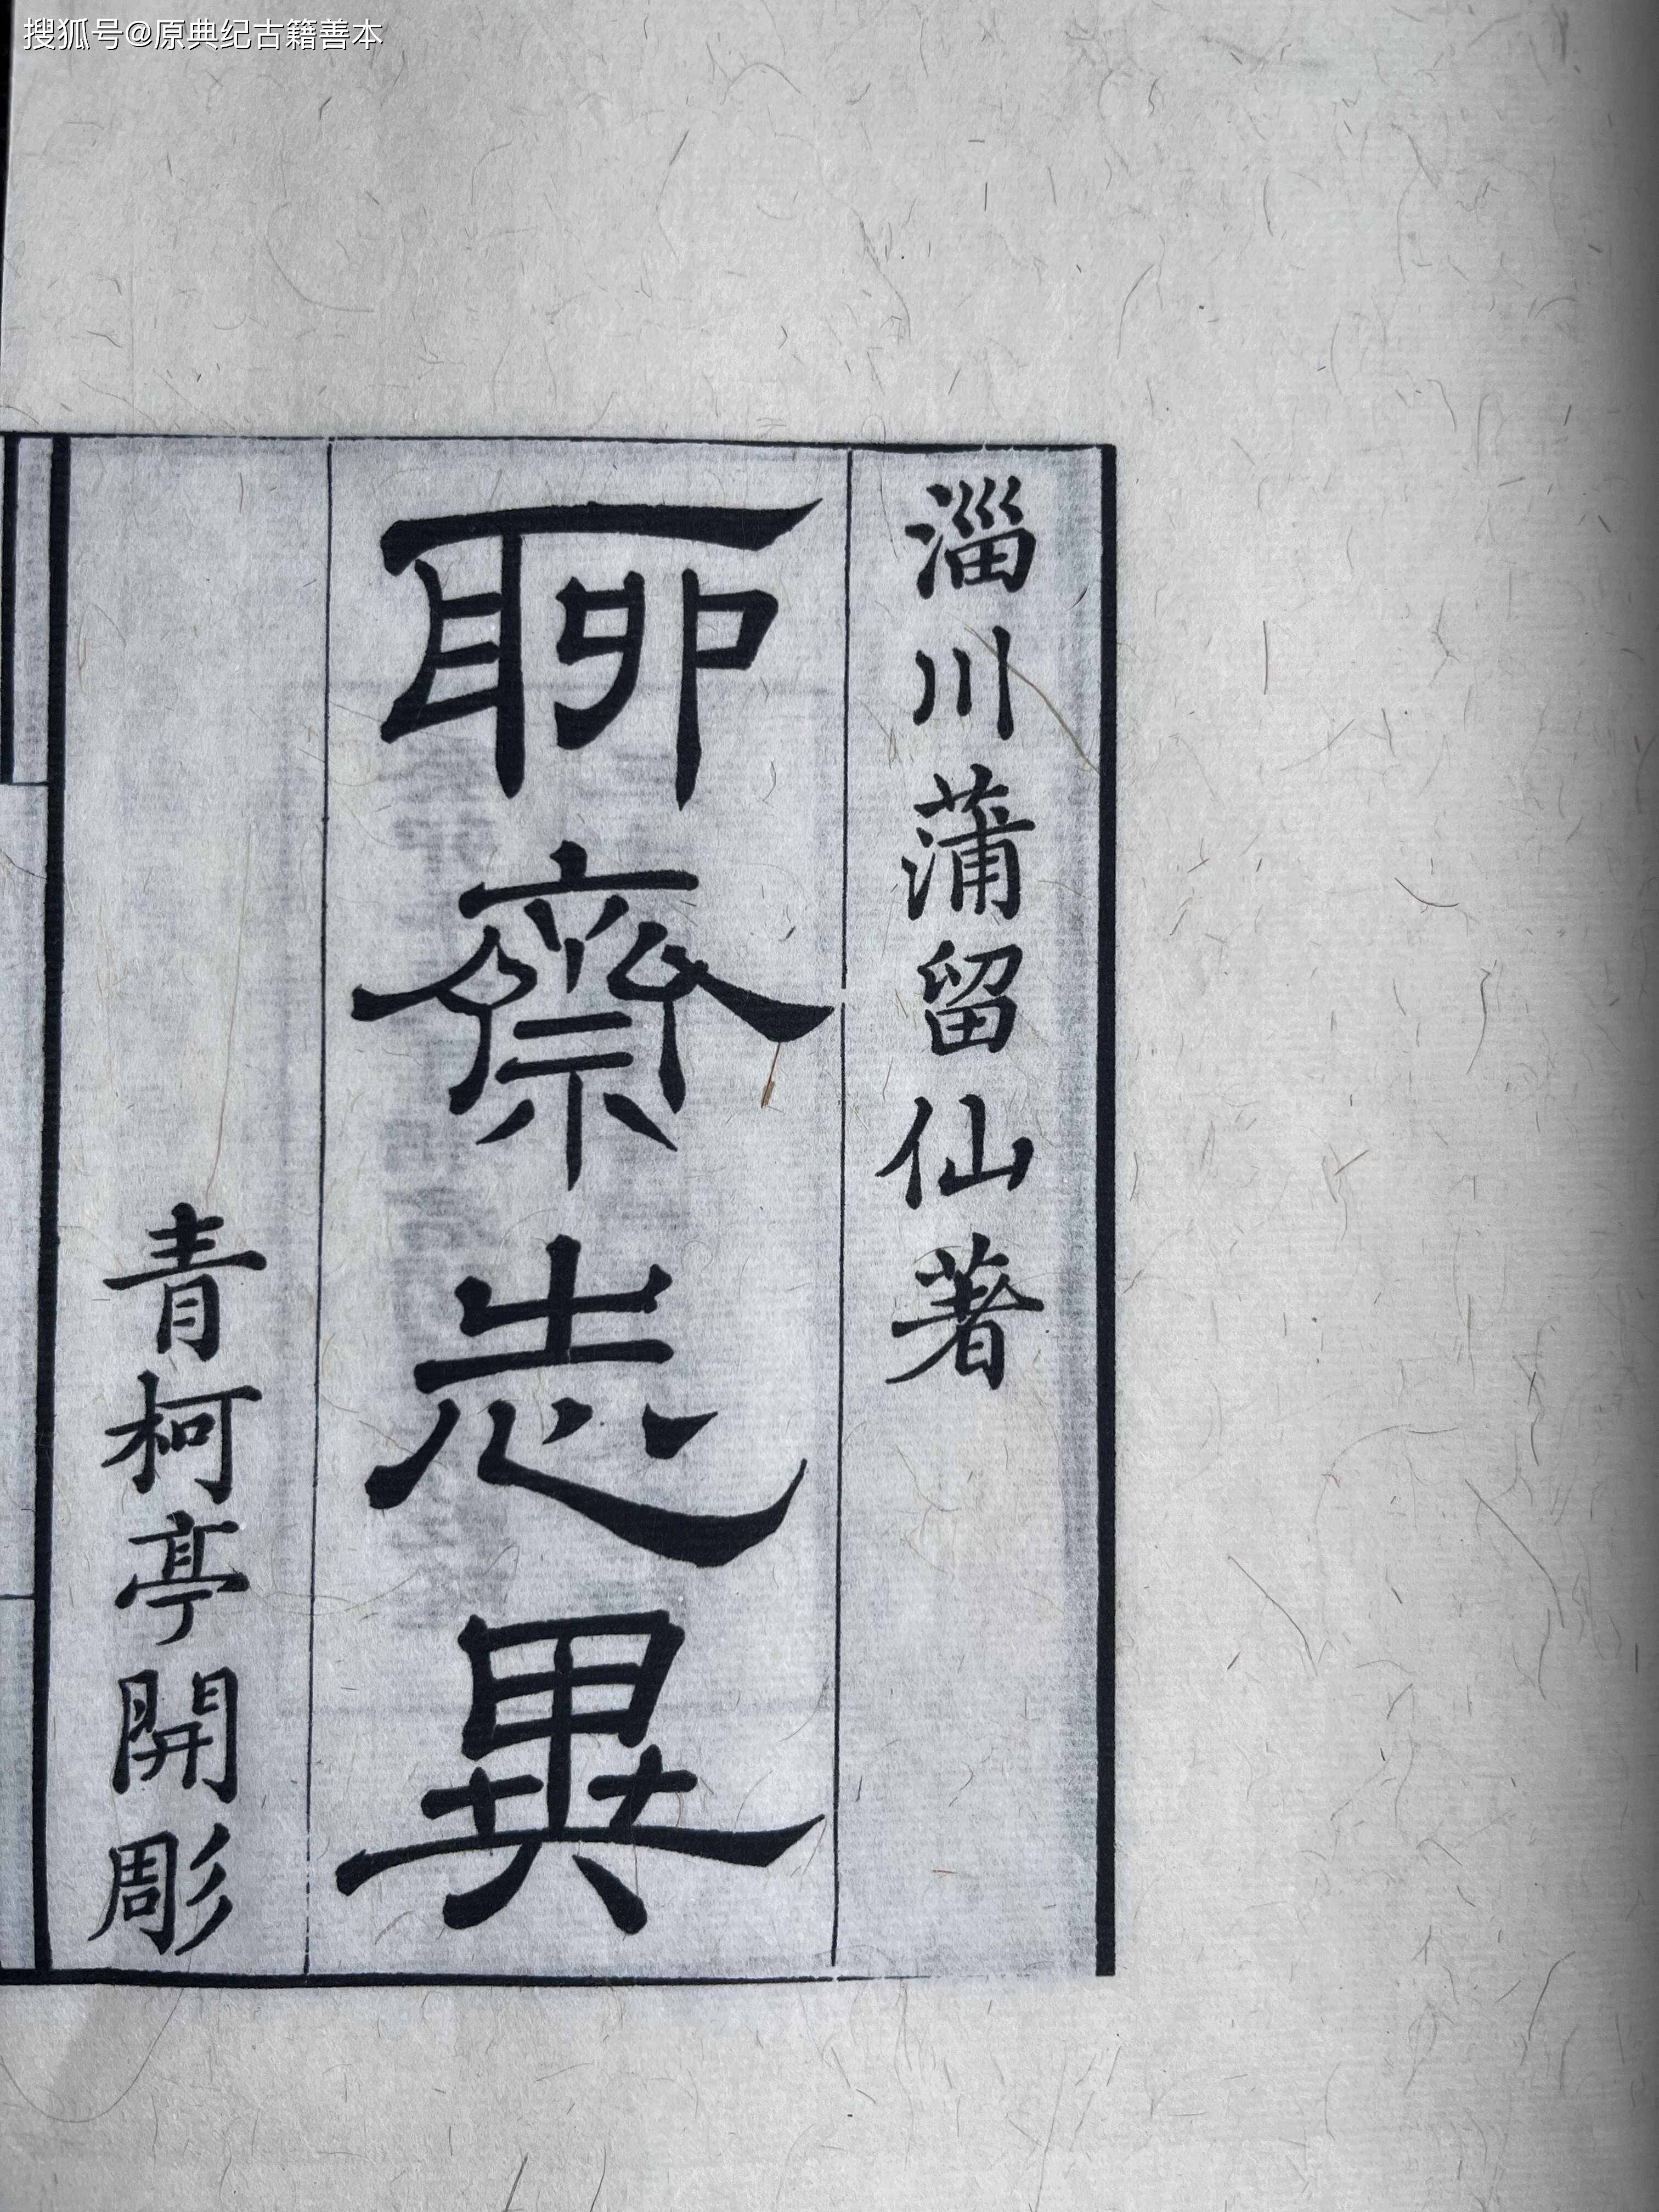 搜狐号@原典纪古籍善本
淄川蒲留仙著
聊齋志異
青柯亭開彫